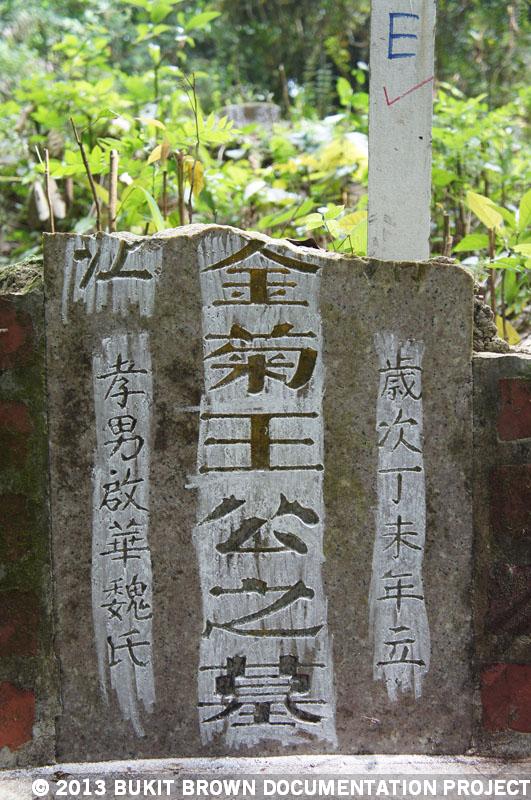 E
歳次丁未年立
金菊王公之墓
孝男啟華魏氏
© 2013 BUKIT BROWN DOCUMENTATION PROJECT